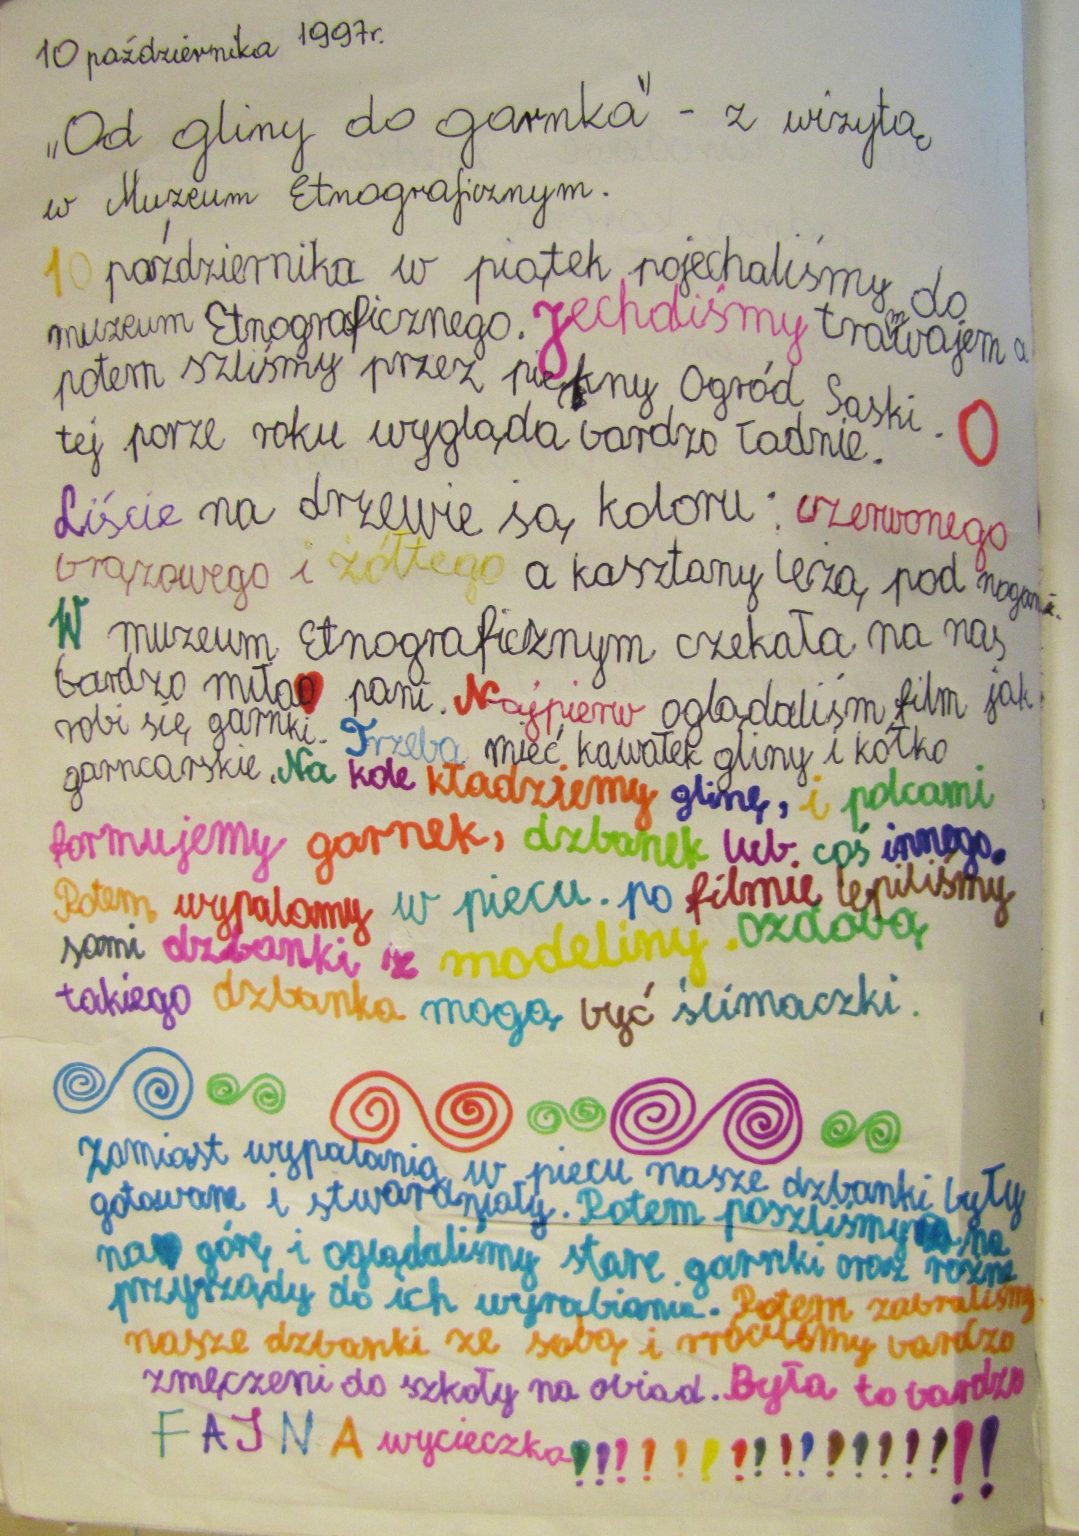 10 października 1997r.
„Od gliny do garnka" - z wizytą
w Muzeum Etnograficznym.
10 października w piątek pojechaliśmy do
muzeum Etnograficznego. Jechaliśmy tramwajem a
potem szliśmy przez piękny Ogród Saski. O
tej porze roku wygląda bardzo ładnie.
Liście na drzewie są koloru: czerwonego
brązowego i żółtego a kasztany leżą pod nogami.
W muzeum Etnograficznym czekała na nas
bardzo miła pani. Najpierw oglądaliśm film jak
robi się garnki. Trzeba mieć kawałek gliny i kółko
garncarskie. Na kole kładziemy glinę, i palcami
formujemy garnek, dzbanek lub coś innego.
Potem wypalamy w piecu. po filmie lepiliśmy
sami dzbanki z modeliny. ozdobą
takiego dzbanka mogą być ślimaczki.
Zamiast wypalania w piecu nasze dzbanki były
gotowane i stwardniały. Potem poszliśmy na
na górę i oglądaliśmy stare garnki oraz różne
przyrządy do ich wyrabiania. Potem zabraliśmy
nasze dzbanki ze sobą i wróciliśmy bardzo
zmęczeni do szkoły na obiad. Była to bardzo
FAJNA wycieczka!!!!!!!!!!!!!!!!